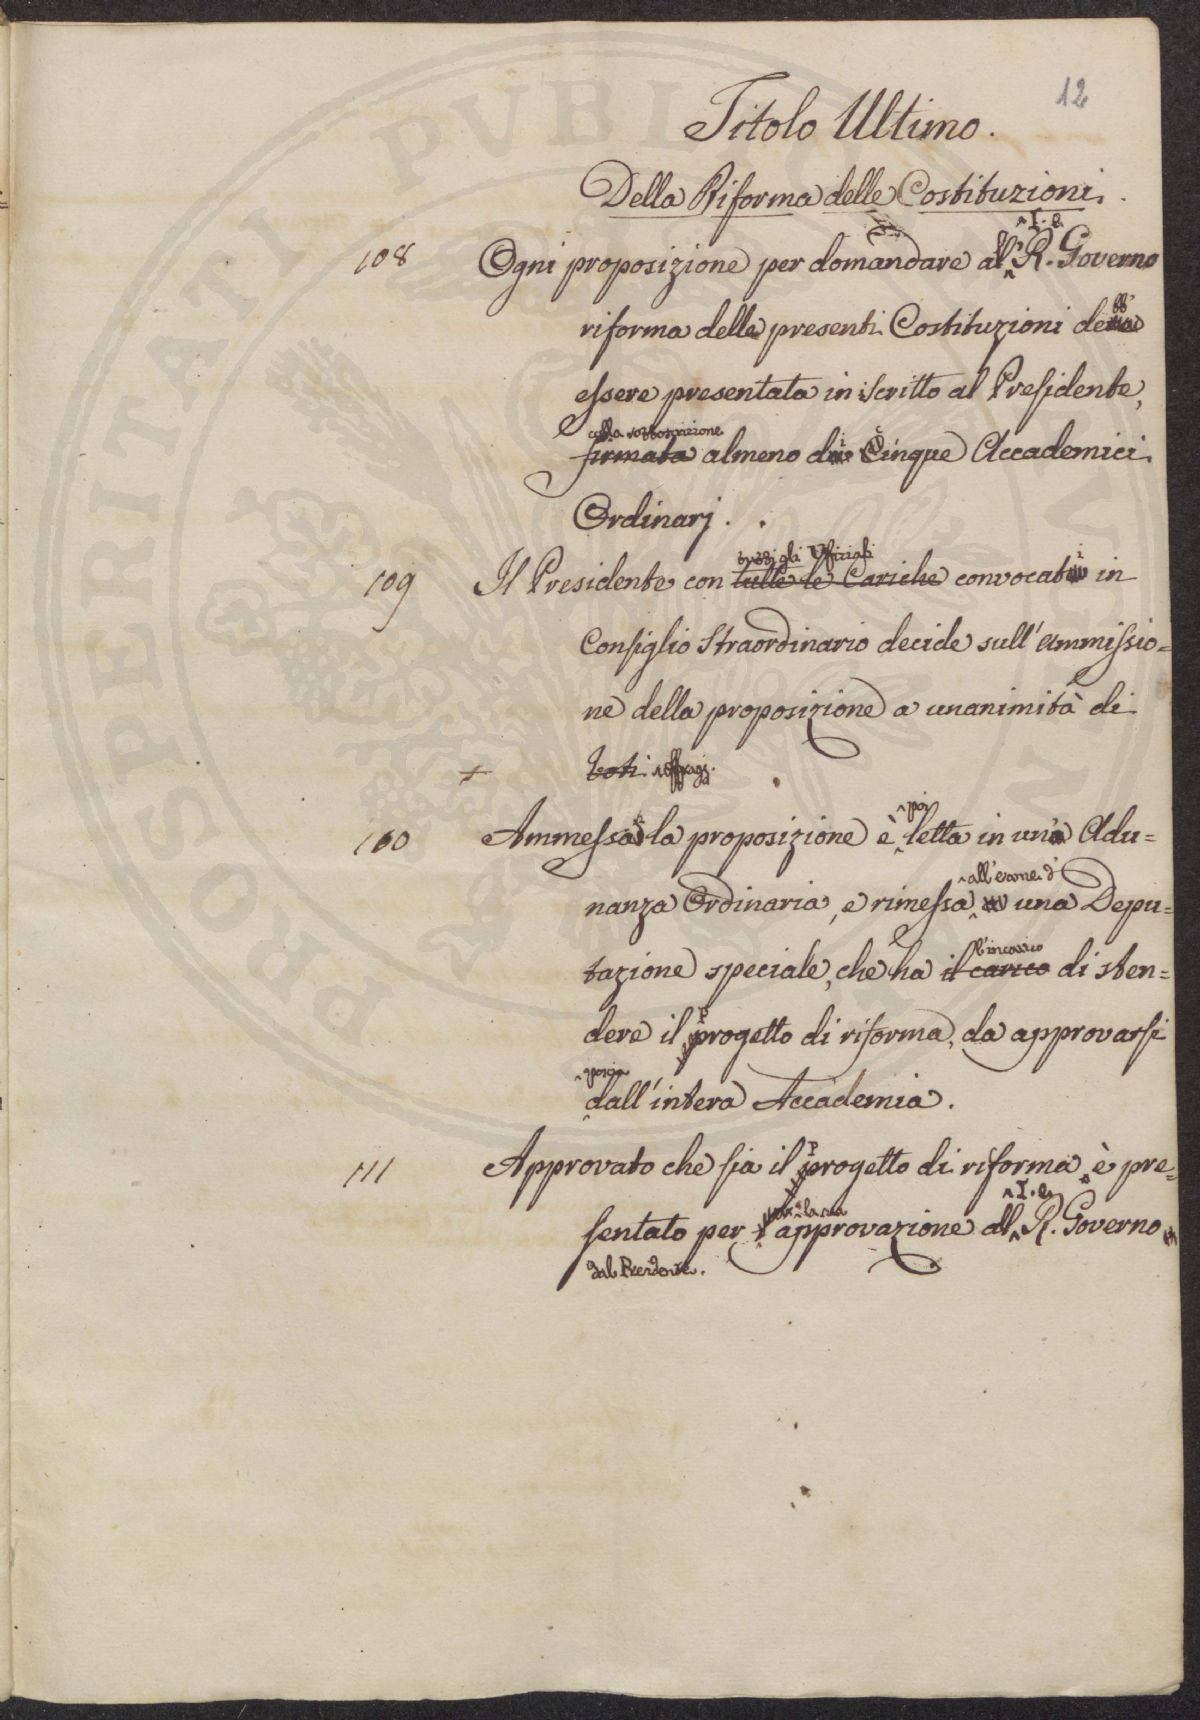 12
Titolo Ultimo.
Della Riforma delle Costituzioni.
^ I. e
108 Ogni proposizione per domandare all' R. Governo
riforma delle presenti Costituzioni debb'
essere presentata in iscritto al Presidente,
colla sottoscrizione
firmata almeno di Cinque Accademici
Ordinarj.
tutti gli Ufficiali
109 Il Presidente con tutte le Cariche convocati in
Consiglio Straordinario decide sull'ammissio=
ne della proposizione a unanimità di
+ voti suffragj.
^ poi
110 Ammessa la proposizione è letta in un' Adu=
^ all'esame d'
nanza Ordinaria, e rimessa una Depu=
l'incarico
tazione speciale, che ha il carico di sten=
dere il Progetto di riforma, da approvarsi
^ poscia
dall'intera Accademia.
111 Approvato che sia il Progetto di riforma, è pre=
^ I. e
la sua
sentato per approvazione all R. Governo
dal Presidente.
PROSPERITATI PVBLICAE